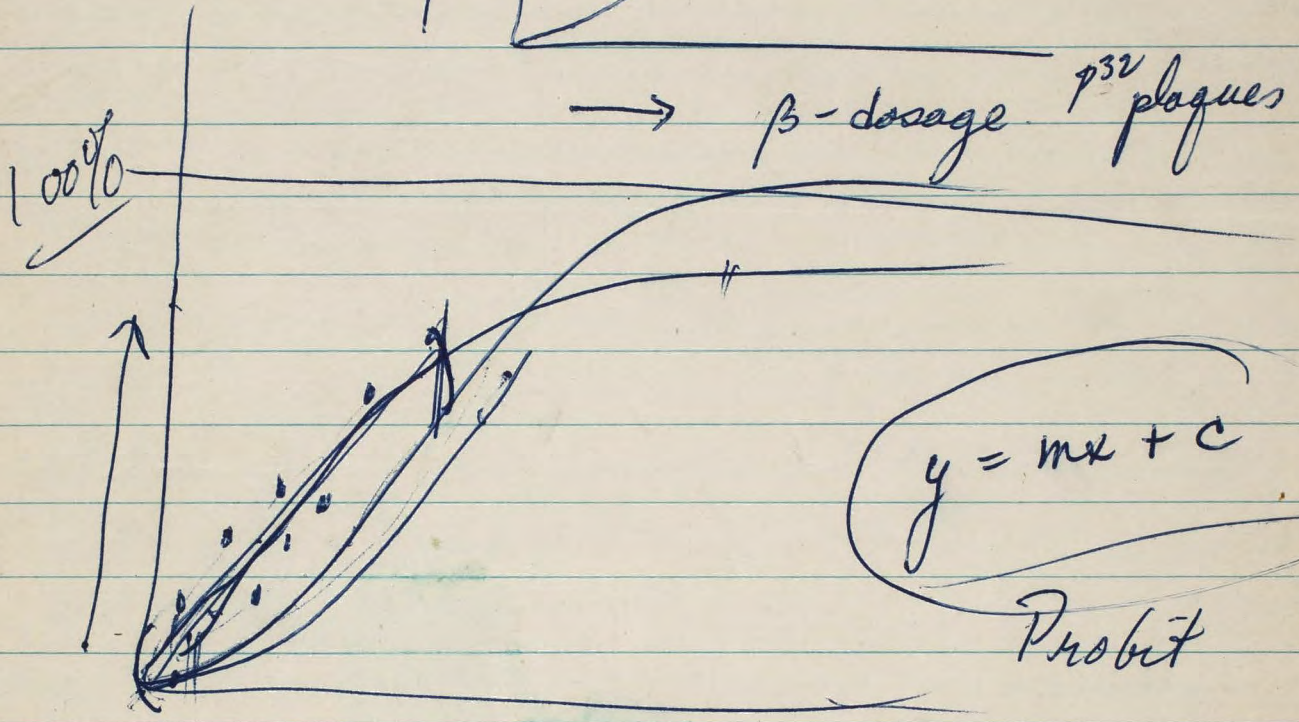 β - dosage P32 plaques
100%
y = mx + c
Probit